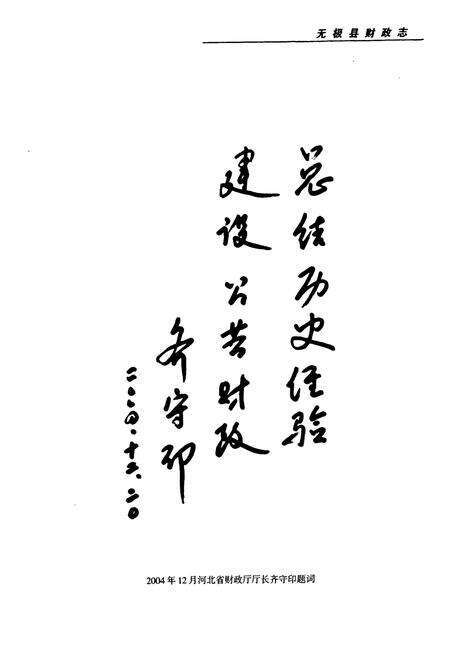 无极县财政志
总结历史经验
建设公共财政
齐守印
二〇〇四.十二.二〇
2004年12月河北省财政厅厅长齐守印题词